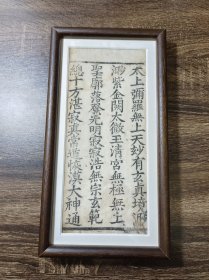 太上彌羅無上天妙有玄真境渺
渺紫金闕太微玉清宮無極無上
聖廓落發光明寂寂浩無宗玄範
總十方湛寂真常道恢漠大神通